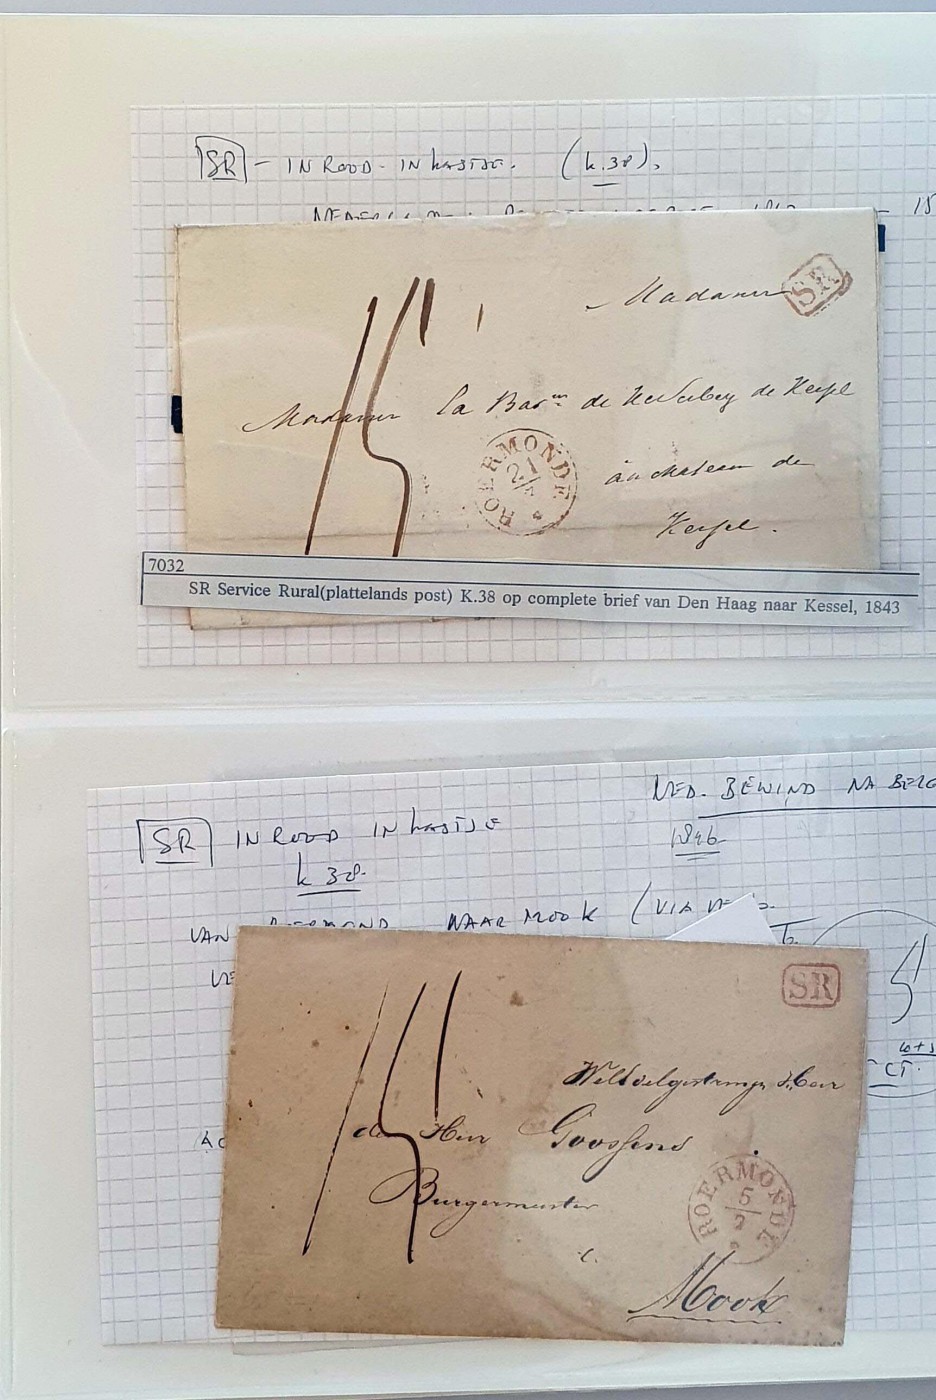 SR - IN ROOD - IN KASTJE. (K.38).
15
SR
Madame
Madame la Bar de Keverberg de Kessel
15
ROERMONDE
21
au chateau de
Kessel.
7032
SR Service Rural(plattelands post) K.38 op complete brief van Den Haag naar Kessel, 1843
NED. BEWIND NA BELG
SR IN ROOD IN KASTJE
1846
K 38.
VAN ROERMOND NAAR MOOK (VIA
SR
15
CT.
Heer
den Heer Goossens
Burgermeester
ROERMONDE
5
2
Mook